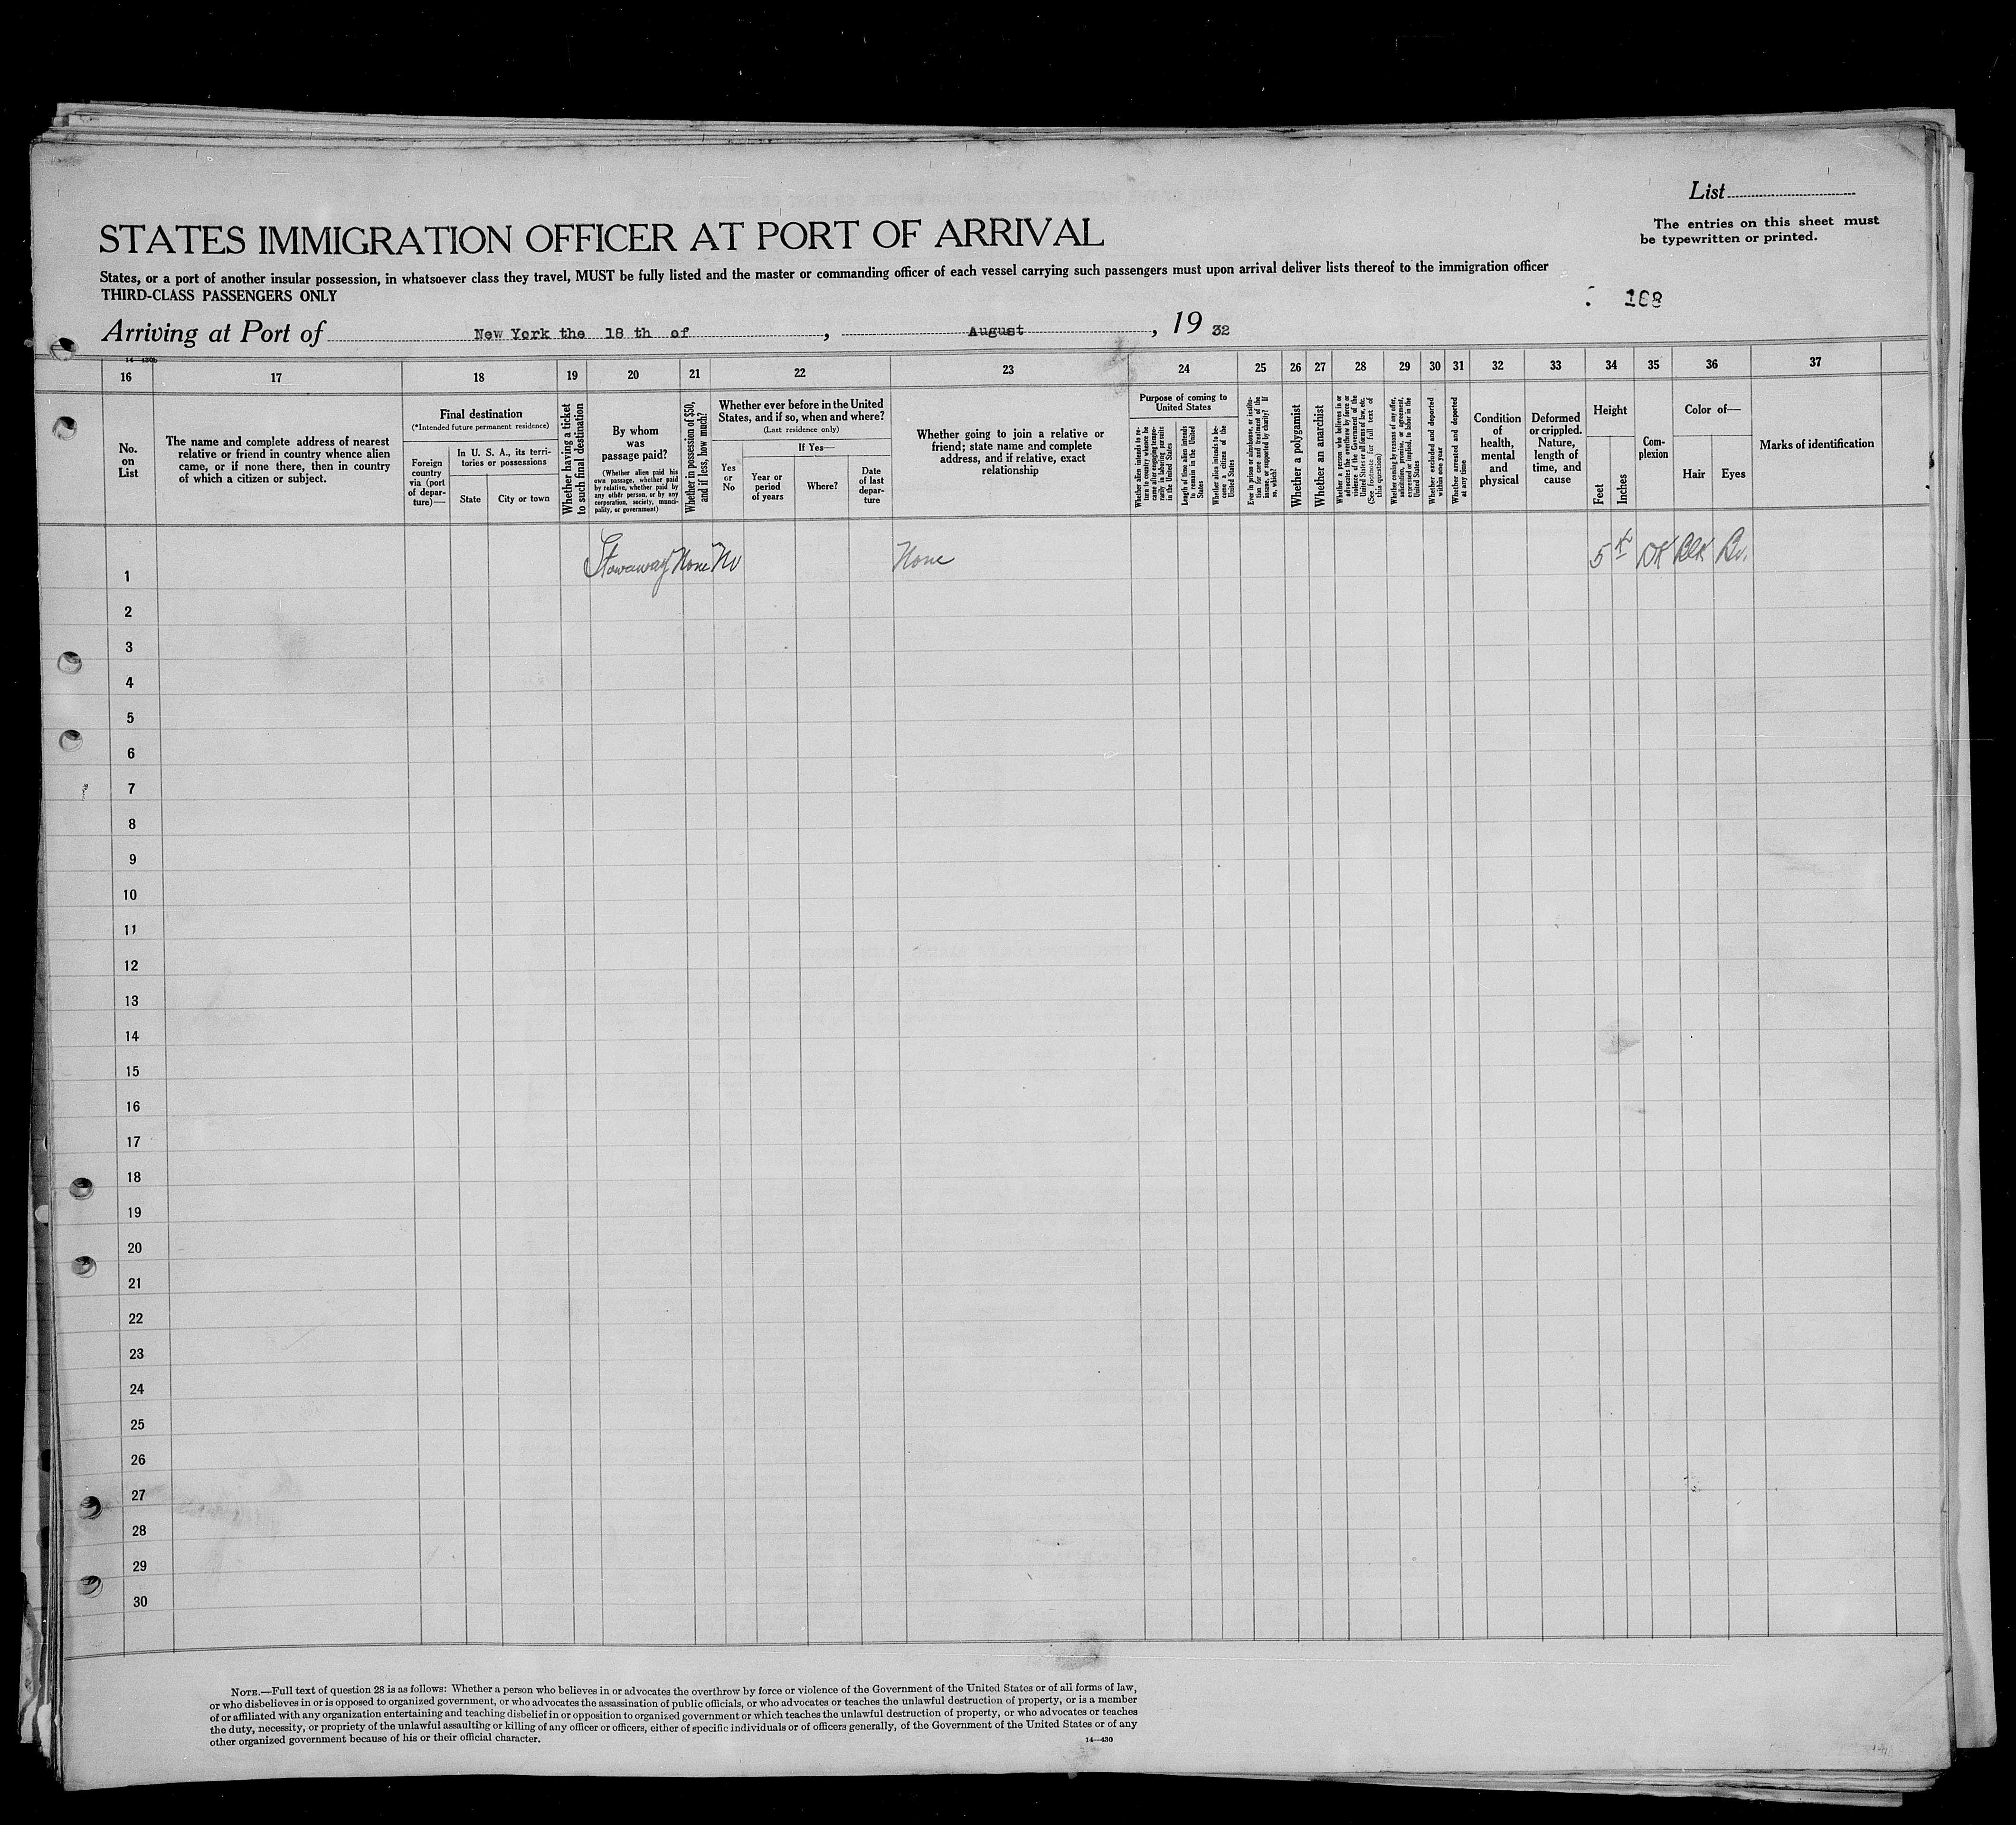 List
The entries on this sheet must
be typewritten or printed.
STATES IMMIGRATION OFFICER AT PORT OF ARRIVAL
States, or a port of another insular possession, in whatsoever class they travel, MUST be fully listed and the master or commanding officer of each vessel carrying such passengers must upon arrival deliver lists thereof to the immigration officer
THIRD-CLASS PASSENGERS ONLY
168
Arriving at Port of New York the 18 th of , August , 19 32
14—430b
16 17 18 19 20 21 22 23 24 25 26 27 28 29 30 31 32 33 34 35 36 37
No.
on
List
The name and complete address of nearest
relative or friend in country whence alien
came, or if none there, then in country
of which a citizen or subject.
Final destination
(*Intended future permanent residence)
Foreign
country
via (port
of depar-
ture)—
In U. S. A., its terri-
tories or possessions
State
City or town
Whether having a ticket
to such final destination
By whom
was
passage paid?
(Whether alien paid his
own passage, whether paid
by relative, whether paid by
any other person, or by any
corporation, society, munici-
pality, or government)
Whether in possession of $50,
and if less, how much?
Whether ever before in the United
States, and if so, when and where?
(Last residence only)
Yes
or
No
If Yes—
Year or
period
of years
Where?
Date
of last
depar-
ture
Whether going to join a relative or
friend; state name and complete
address, and if relative, exact
relationship
Purpose of coming to
United States
Whether alien intends to re-
turn to country whence he
came after engaging tempo-
rarily in laboring pursuits
in the United States
Length of time alien intends
to remain in the United
States
Whether alien intends to be-
come a citizen of the
United States
Ever in prison or almshouse, or institu-
tion for care and treatment of the
insane, or supported by charity? If
so, which?
Whether a polygamist
Whether an anarchist
Whether a person who believes in or
advocates the overthrow by force or
violence of the Government of the
United States or all forms of law, etc.
(See footnote for full text of
this question)
Whether coming by reasons of any offer,
solicitation, promise, or agreement,
expressed or implied, to labor in the
United States
Whether excluded and deported
within one year
Whether arrested and deported
at any time
Condition
of
health,
mental
and
physical
Deformed
or crippled.
Nature,
length of
time, and
cause
Height
Feet
Inches
Com-
plexion
Color of—
Hair
Eyes
Marks of identification
1 Stowaway None No None 5 DK Blk Br.
2
3
4
5
6
7
8
9
10
11
12
13
14
15
16
17
18
19
20
21
22
23
24
25
26
27
28
29
30
NOTE.—Full text of question 28 is as follows: Whether a person who believes in or advocates the overthrow by force or violence of the Government of the United States or of all forms of law,
or who disbelieves in or is opposed to organized government, or who advocates the assassination of public officials, or who advocates or teaches the unlawful destruction of property, or is a member
of or affiliated with any organization entertaining and teaching disbelief in or opposition to organized government or which teaches the unlawful destruction of property, or who advocates or teaches
the duty, necessity, or propriety of the unlawful assaulting or killing of any officer or officers, either of specific individuals or of officers generally, of the Government of the United States or of any
other organized government because of his or their official character.
14—430